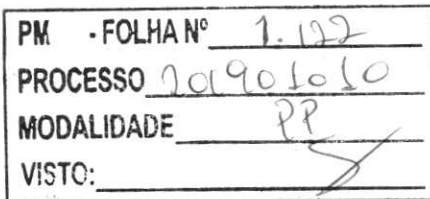 PM - FOLHA Nº 1.122
PROCESSO 201901010
MODALIDADE PP
VISTO: